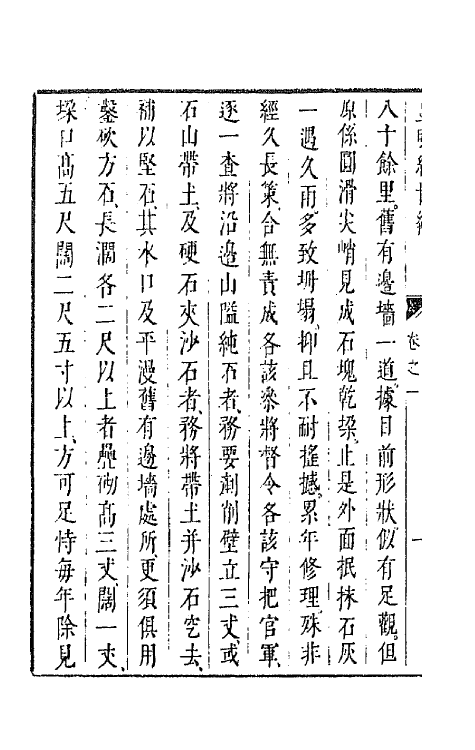 卷之一
八十餘里。舊有邊墻一道。據目前形狀似有足觀。但
原係圓滑尖峭見成石塊乾搡。止是外面抿抹石灰
一遇久雨。多致坍塌。抑且不耐搖撼。累年修理。殊非
經久長策、合無責成各該叅將督令各該守把官軍、
逐一查將沿邊山隘純石者、務要剷削壁立三丈、或
石山帶土、及硬石夾沙石者、務將帶土并沙石空去、
補以堅石其水口及平漫舊有邊墻處所、更須俱用
鑿砍方石、長濶各二尺以上者疊砌高三丈闊一丈、
垛口高五尺闊二尺五寸以上、方可足恃每年除見